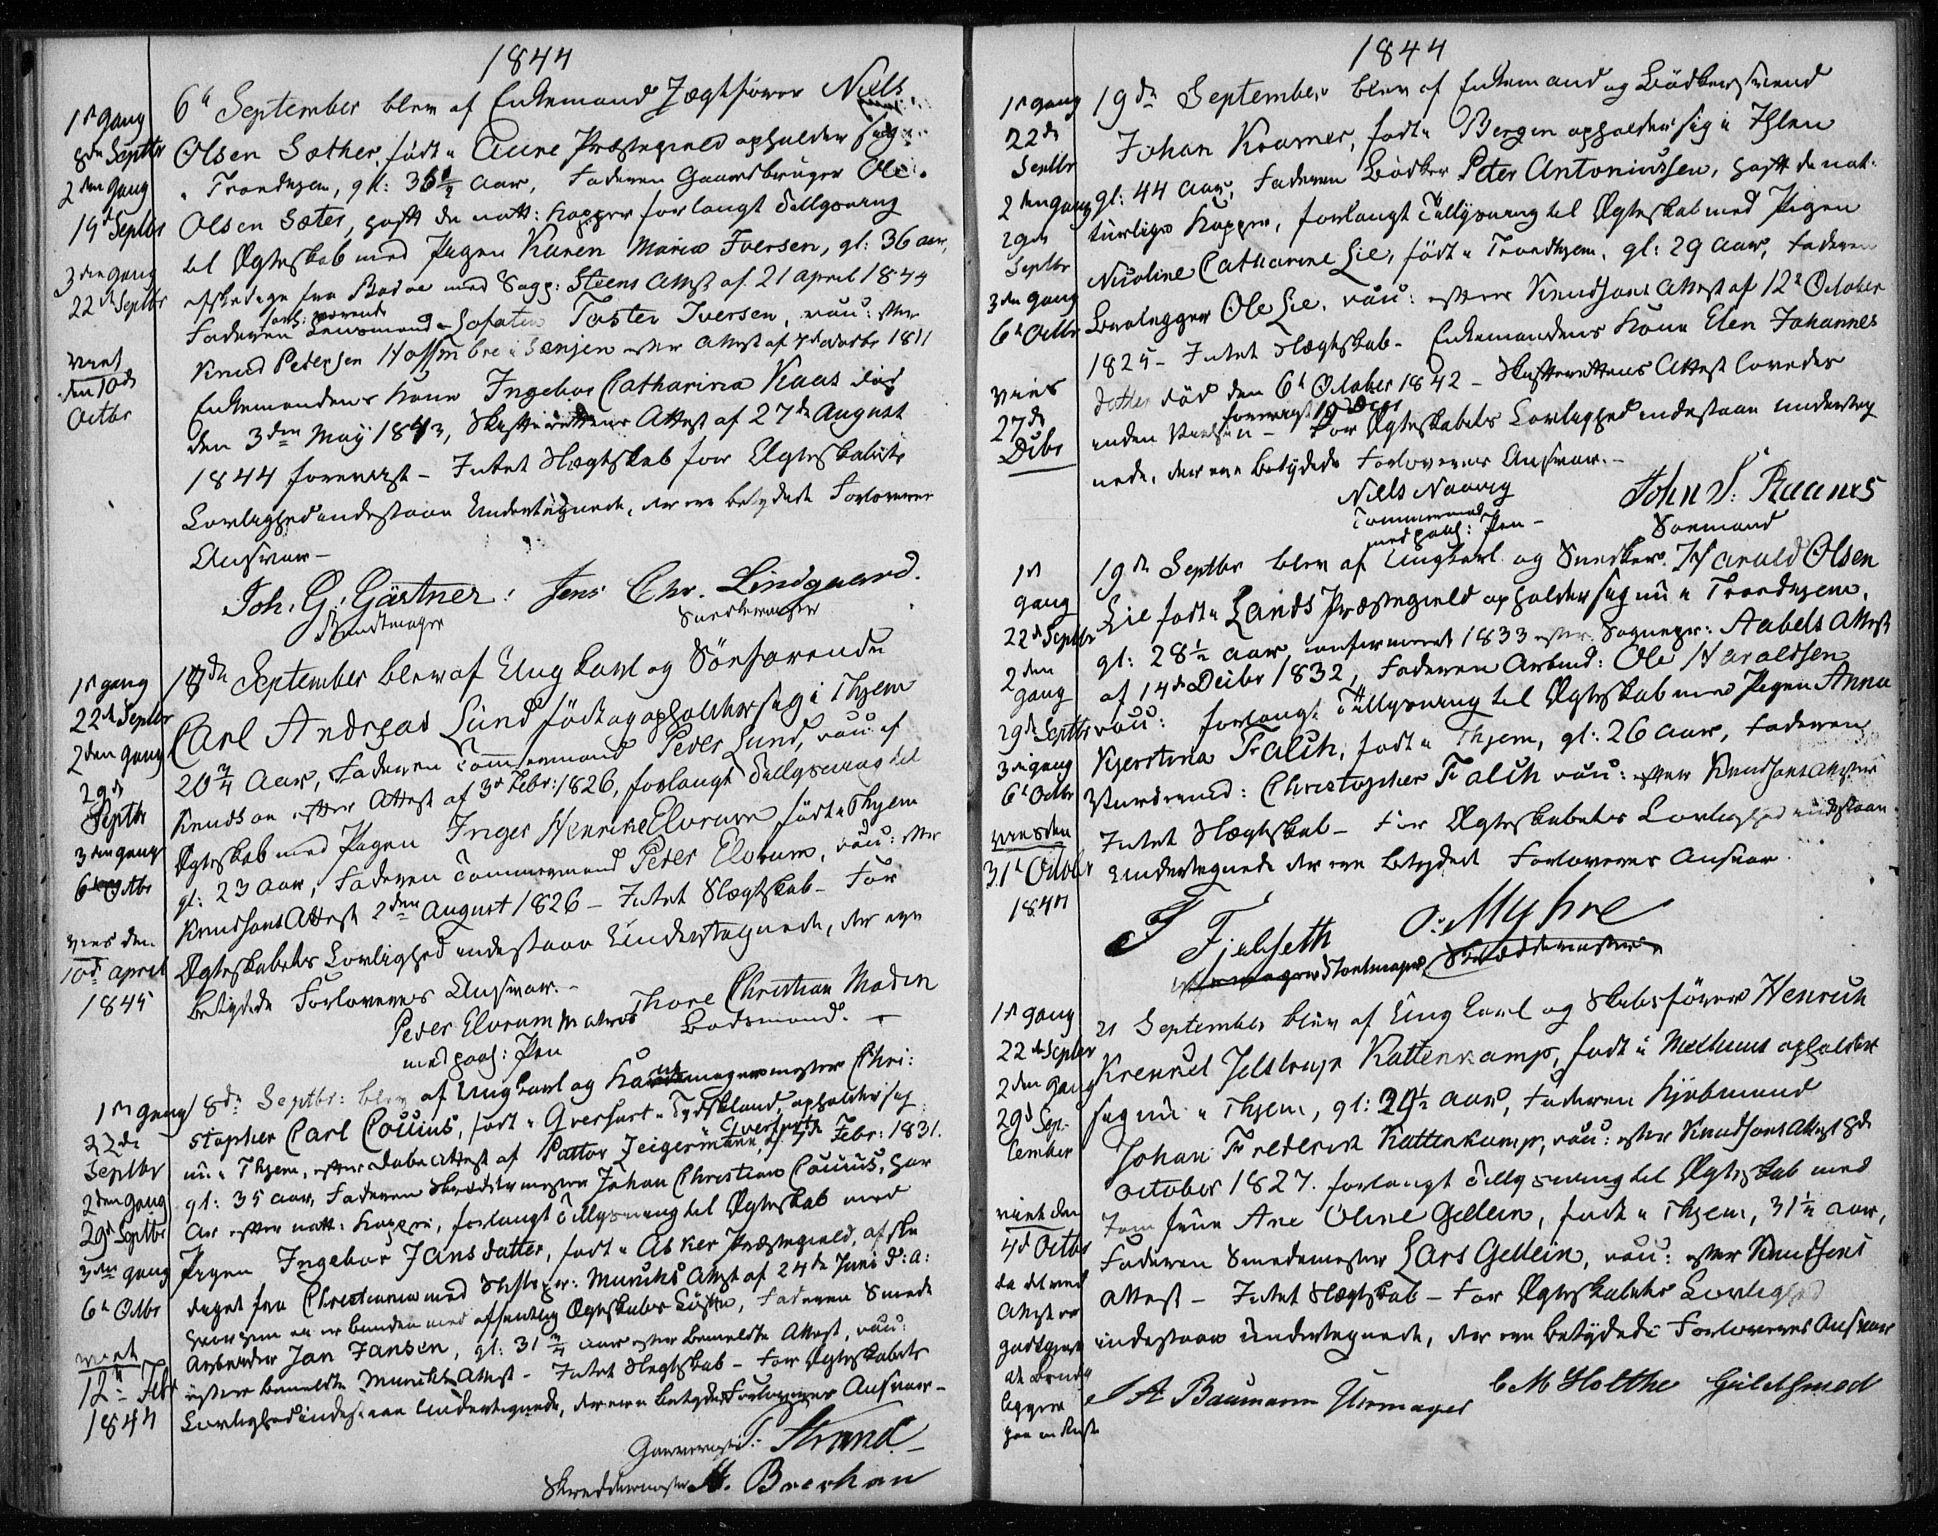 1844
1ste gang
8de Septbr
2den gang
15de Septbr
3den gang
22de Septbr
viet
den 10de
Octbr
6te September blev af Enkemand Jægtfører Niels
Olsen Sæther, født i Aure Præstegield opholder sig
i Trondhjem, gl: 36½ Aar, Faderen Gaardbruger Ole
Olsen Sæter, havt de natt: Kopper forlangt Tillysning
til Ægteskab med Pigen Karen Maria Iversen, gl: 36 aar,
afskediget fra Bodøe med Sogp: Steens Attest af 21 april 1844
Faderen forh: værende Lensmand Toster Iversen, vau: efter
Knud Petersen i Senjen efter Attest af 1811
Enkemandens Kone Ingebor Catharina Kaas død
den 3den May 1843, Skifterettens Attest af 27de August
1844 foreviist - Intet Slægtskab for Ægteskabets
Lovlighed indestaaer Undertegnede, der ere betydede Forloveres
Ansvar -
Joh. G. Gärtner. Jens Chr. Lindgaard.
Buntmager Snedkermester
1ste gang
22de Septbr
2den gang
29de
Septbr
3den gang
6te Octbr
vies den
10de april
1845
18de September blev af Ung Karl og Sönfarende
Carl Andreas Lund født og opholder sig i Thjem
20¾ Aar, Faderen Tømmermand Peder Lund, vau: af
Knudson efter Attest af 3de Febr: 1826, forlangt Tillysning til
Ægteskab med Pigen Inger Henrike Elvrum født i Thjem
gl: 23 Aar, Faderen Tømmermand Peder Elvrum, vau: efter
Knudsons Attest 2den August 1826 - Intet Slægtskab - For
Ægteskabets Lovlighed indestaaer Undertegnede, der ere
betydede Forloveres Ansvar. -
Peder Elvrum Matros Thore Christian Madsen
med paah: Pen Baadsmand. -
1ste gang
22de
Septbr
2den gang
29de Septbr
3den gang
6te Octbr
viet
12te Febr
1844
18de Septbr: blev af Ungkarl og magermester Chri:
stopher Carl Couius, født i Qverfurt i Tydskland, opholder sig
nu i Thjem, efter Daabs Attest af Pastor Zeigermann, Qverfurt af 7de Febr: 1831.
gl: 35 aar, Faderen Skræddermester Johan Christian Couius, har
efter natt: Kopper, forlangt Tillysning til Ægteskab med
Pigen Ingebor Jansdatter, født i Asker Præstegield, afske
diget fra Christiania med Stiftspr: Munchs Attest af 24de Juni d: a:
hvor hun ei er bunden med offentlig Ægteskabs Løfte, Faderen Smede
Arbeider Jan Jansen, gl: 31¾ aar efter bemeldte Attest, vau:
efter bemeldte Munchs Attest - Intet Slægtskab - For Ægteskabets
Lovlighed indestaaer Undertegnede, der ere betydede Forloveres Ansvar -
Garvermester Strand
Skræddermester H. Brechan
1844
1ste gang
22de
Septbr
2den gang
29de
Septbr
3den gang
6te Octbr
vies
27de
Dcbr
19de September blev af Enkemand og Bødkersvend
Johan Kramer, født i Bergen opholder sig i Ihlen
gl: 44 aar, Faderen Bødker Peter Antoniussen, havt de nat-
turlige Kopper, forlangt Tillysning til Ægteskab med Pigen
Nicoline Catharine Lie, født i Trondhjem, gl: 29 Aar, Faderen
Brolegger Ole Lie, vau: efter Knudsons Attest af 12te October
1825 - Intet Slægtskab - Enkemandens Kone Elen Johannes
datter død den 6te October 1842 - Skifterettens Attest lovedes
inden Vielsen - foreviist 19 Decbr For Ægteskabets Lovlighed indestaaer underteg
nede, der ere betydede Forloveres Ansvar. -
Niels Naavig John S: Raanes
Tømmermand Søemand
med paah: Pen -
1ste
gang
22de Septbr
2den
gang
29de Septbr
3die gang
6te Octbr
vies den
31te October
1844
19de Septbr blev af Ungkarl og Snedker Harald Olsen
Lie født i Lands Præstegield opholder sig nu i Trondhjem,
gl: 28½ Aar, confirmeret 1833 efter Sognepr: Aabels Attest
af 14de Decbr 1832, Faderen Arbmd: Ole Haraldsen
vau: forlangt Tillysning til Ægteskab med Pigen Anna
Kjerstina Falch, født i Thjem, gl: 26 aar, Faderen
Christopher Falch vau: efter Knudsons Attest
Intet Slægtskab - For Ægteskabets Lovlighed indestaaer
Undertegnede der ere betydede Forloveres Ansvar.
P Fjelseth O: Myhre
Stoelmager Skræddermester
1ste gang
22de Septbr
2den gang
29de Sep-
tember
viet den
4de Octbr
da det med
Attest er
godtgjort
at
ligger
paa en Reise
21 September blev af Ung Karl og Skibsfører Henrich
Krennel Jelstrup Kattenkamp, født i Melhuus opholder
sig nu i Thjem, gl: aar, Faderen Kjøbmand
Johan Frederik Kattenkamp, vau: efter Knudsons Attest 8de
October 1827. forlangt Tillysning til Ægteskab med
Jomfrue Ane Oline Gellein, født i Thjem, 31½ aar,
Faderen Smedemester Lars Gellein, vau: efter Knudsons
Attest - Intet Slægtskab - For Ægteskabets Lovlighed
indestaaer Undertegnede, der ere betydede Forloveres Ansvar
J A Baumann Uhrmager C M Holthe Guldsmed